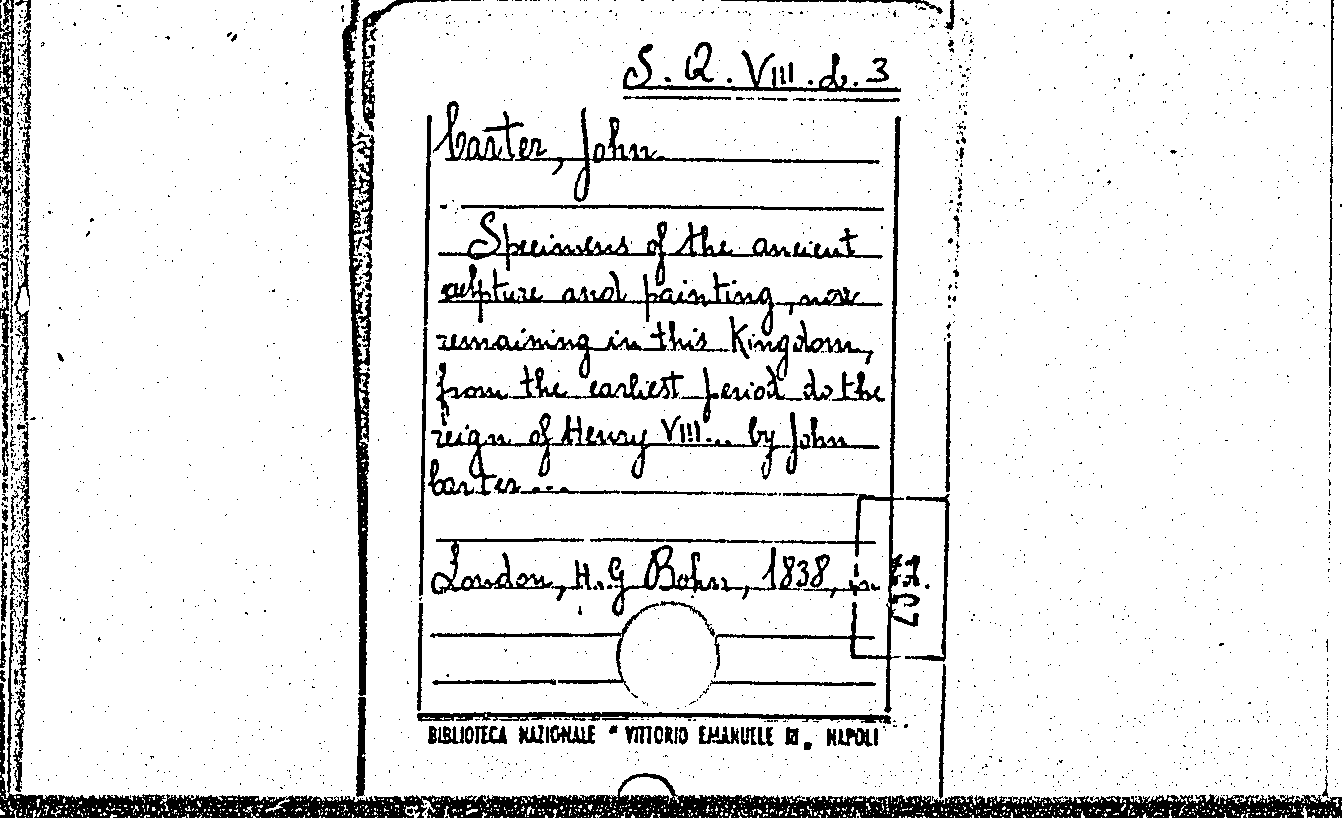 S. Q. VIII. d. 3
Carter, John
Specimens of the ancient
sculpture and painting, now
remaining in this Kingdom,
from the earliest period to the
reign of Henry VIII... by John
Carter...
London, H. G Bohn, 1838, in
fol.
BIBLIOTECA NAZIONALE " VITTORIO EMANUELE III „ NAPOLI